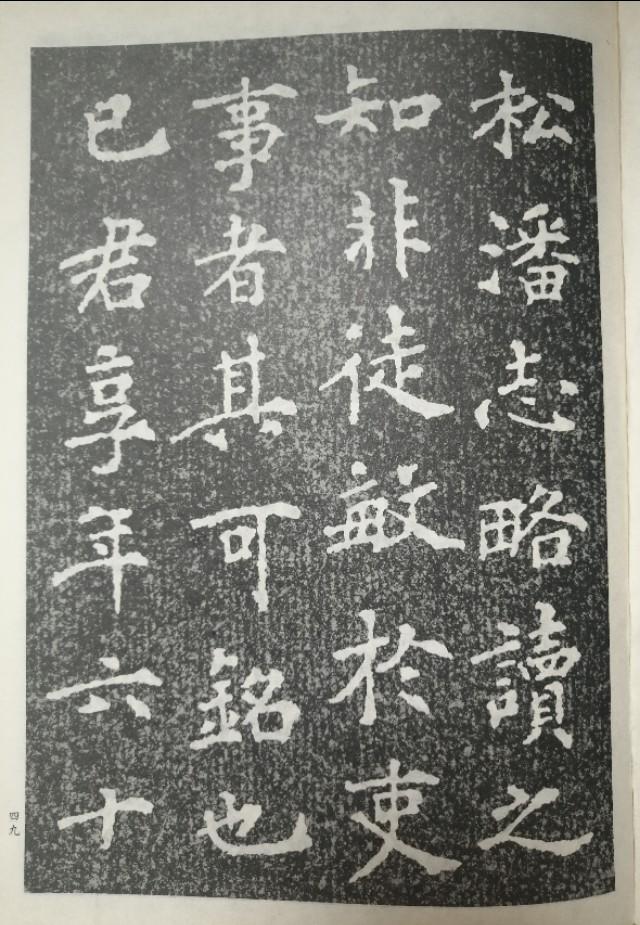 松潘志略讀之
知非徒敏於吏
事者其可銘也
已君享年六十
四九